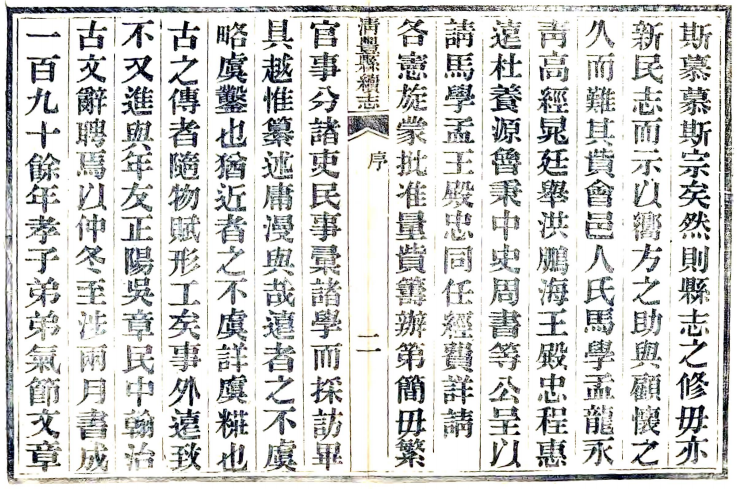 斯慕慕斯宗矣然則縣志之修毋亦
新民志而示以嚮方之助與顧懷之
久而難其貲會邑人氏馬學孟龍永
青高經晁廷舉洪鵬海王殿忠程惠
遠杜養源魯秉中史周書等公呈以
請馬學孟王殿忠同任經費詳請
各憲旋蒙批准量貲籌辦第簡毋繁
清豐縣續志
序
二
官事分諸吏民事彙諸學而採訪畢
具越惟纂述庸漫與哉遠者之不虞
略虞鑿也猶近者之不虞詳虞糅也
古之傳者隨物賦形工矣事外遠致
不又進與年友正陽吳章民中翰治
古文辭聘焉以仲冬至涉兩月書成
一百九十餘年孝子弟弟氣節文章